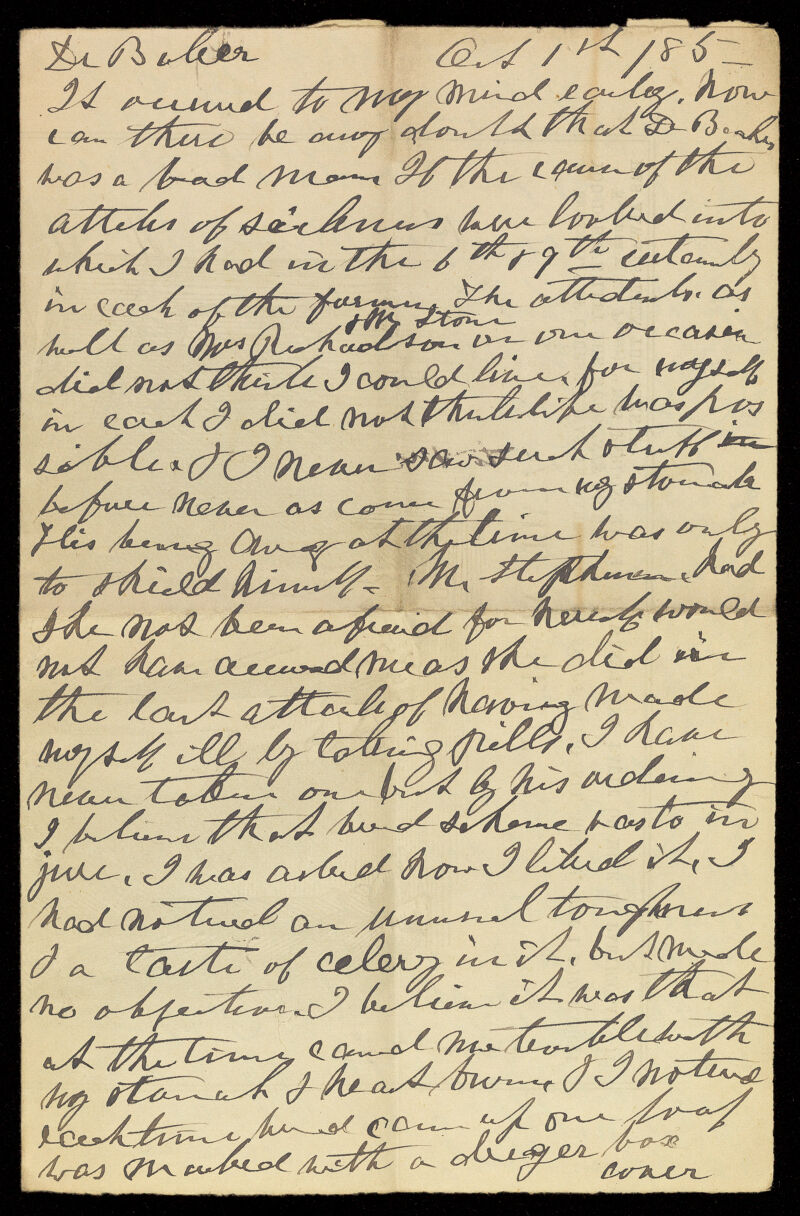 Dr Baker Oct 1st 185
It occured to my mind early. How
can there be any doubt that Dr Baker
was a bad man If the cause of the
attcks of sickness were looked into
which I had in the 6th & 9th
in each of the The attendents. as
well as Mrs Richardson & Mr Stone on one occasion
did not think I could live, for myself
in each I did not think life was pos
sible. & I never saw such stuff in
before never as come from my stomach
His being away at the time was only
to shield himself. Mr Stephenson. had
she not been afraid for herself would
not have accused me as she did in
the last attack of having made
myself ill by taking pills, I have
never taken one but by his ordering
I believe that bred scheme was to in
jure, I was asked how I liked it, I
had noticed an unusual toughness
& a taste of celery in it, but made
no objection. I believe it was that
at the time caused me terrible with
my stomah & heart burn, & I noticed
each time bred came up one loaf
was marked with a deeper box
cover